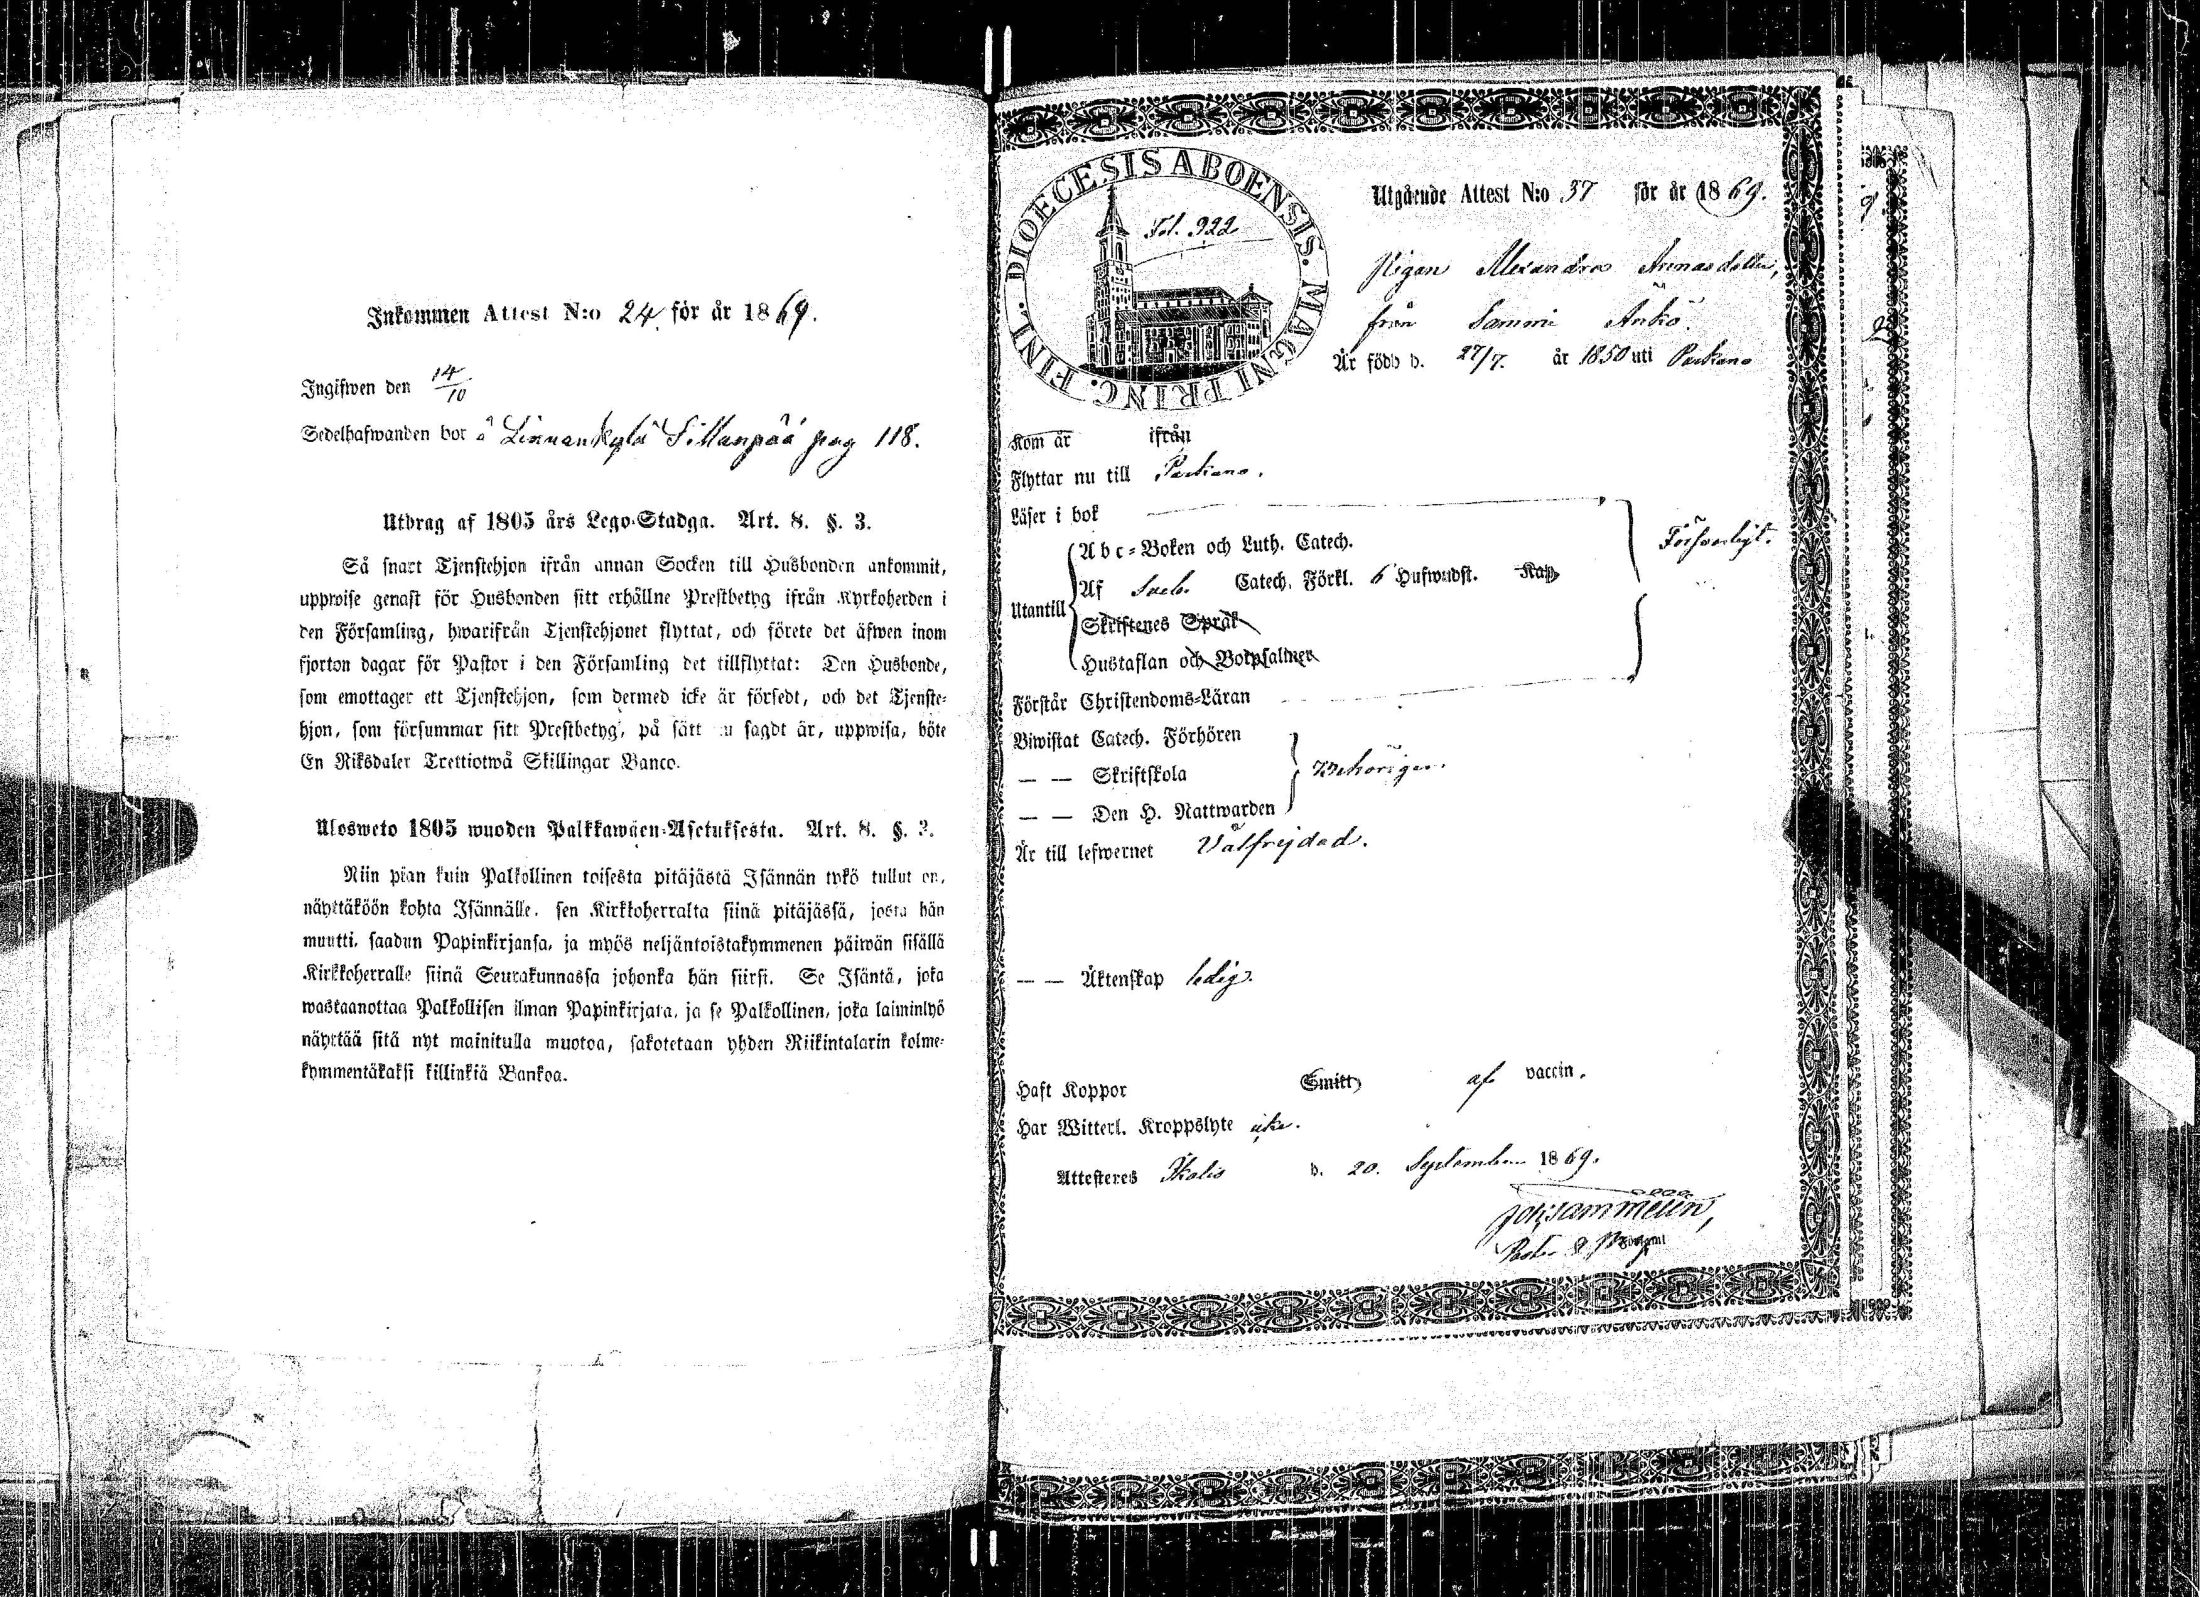 Inkommen Attest N:o 24. för år 1869.
Ingifwen den 14/10
Sedelhafwanden bor å Linnankylä Sillanpää pag 118.
Utdrag af 1805 års Lego-Stadga. Art. 8. §. 3.
Så snart Tjenstehjon ifrån annan Socken till Husbonden ankommit,
uppwise genast för Husbonden sitt erhållne Prestbetyg ifrån Kyrkoherden i
den Församling, hwarifrån Tjenstehjonet flyttat, och förete det äfwen inom
fjorton dagar för Pastor i den Församling det tillflyttat: Den Husbonde,
som emottager ett Tjenstehjon, som dermed icke är försedt, och det Tjenste-
hjon, som försummar sitt Prestbetyg, på sätt nu sagdt är, uppwisa, böte
En Riksdaler Trettiotwå Skillingar Banco.
Ulosweto 1805 wuoden Palkkawäen-Asetuksesta. Art. 8. §. 3.
Niin pian kuin Palkollinen toisesta pitäjästä Isännän tykö tullut on,
näyttäköön kohta Isännälle, sen Kirkkoherralta siinä pitäjässä, josta hän
muutti, saadun Papinkirjansa, ja myös neljäntoistakymmenen päiwän sisällä
Kirkkoherralle siinä Seurakunnassa johonka hän siirsi. Se Isäntä, joka
wastaanottaa Palkollisen ilman Papinkirjata, ja se Palkollinen, joka laiminlyö
näyttää sitä nyt mainitulla muotoa, sakotetaan yhden Riikintalarin kolme-
kymmentäkaksi killinkiä Bankoa.
DIOECESIS ABOENSIS. MAGNI PRINC. FINL.
Fol. 922
Utgående Attest N:o 37 för år 1869.
Pigan Alexandra Arenasdotter,
från Sammi Ankö.
Är född d. 27/7. år 1850 uti Parkano
Kom år ifrån
Flyttar nu till Parkano.
Läser i bok
Utantill
Abc-Boken och Luth. Catech.
Af Sveb. Catech. Förkl. 6 Hufwudst. Kap
Skriftenes Språk
Hustaflan och Botpsalmer
Försvarligt.
Förstår Christendoms-Läran
Biwistat Catech. Förhören
— — Skriftskola
Behörigen.
— — Den H. Nattwarden
Är till lefwernet Välfrejdad.
— — Äktenskap ledig.
Haft Koppor Smitt af vaccin.
Har Witterl. Kroppslyte icke.
Attesteres Ikalis d. 20. September 1869.
Joh. Sammelin,